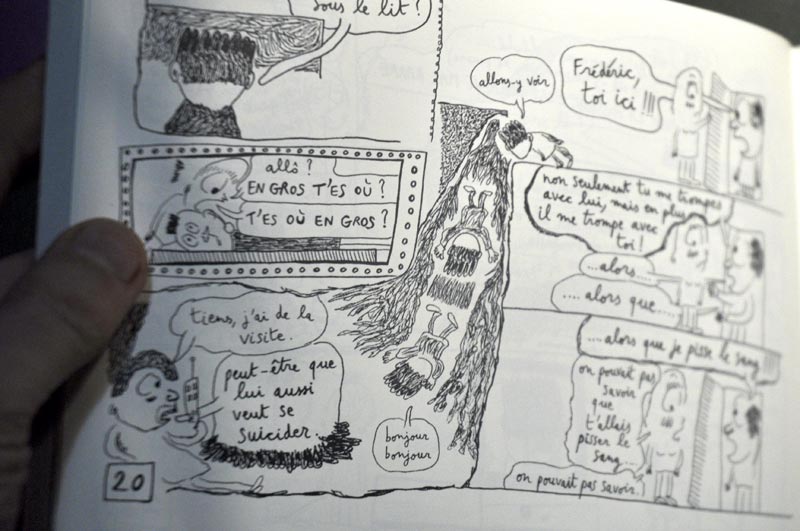 sous le lit !
allô ?
EN GROS T'ES OÙ ?
T'ES OÙ EN GROS ?
tiens, j'ai de la
visite.
peut-être que
lui aussi
veut se
suicider.
bonjour
bonjour
20
allons-y voir
Frédéric,
toi ici !!!
non seulement tu me trompes
avec lui, mais en plus
il me trompe avec
toi !
...alors...
.... alors que....
...alors que je pisse le sang
on pouvait pas
savoir
que
t'allais
pisser le
sang...
on pouvait pas savoir.